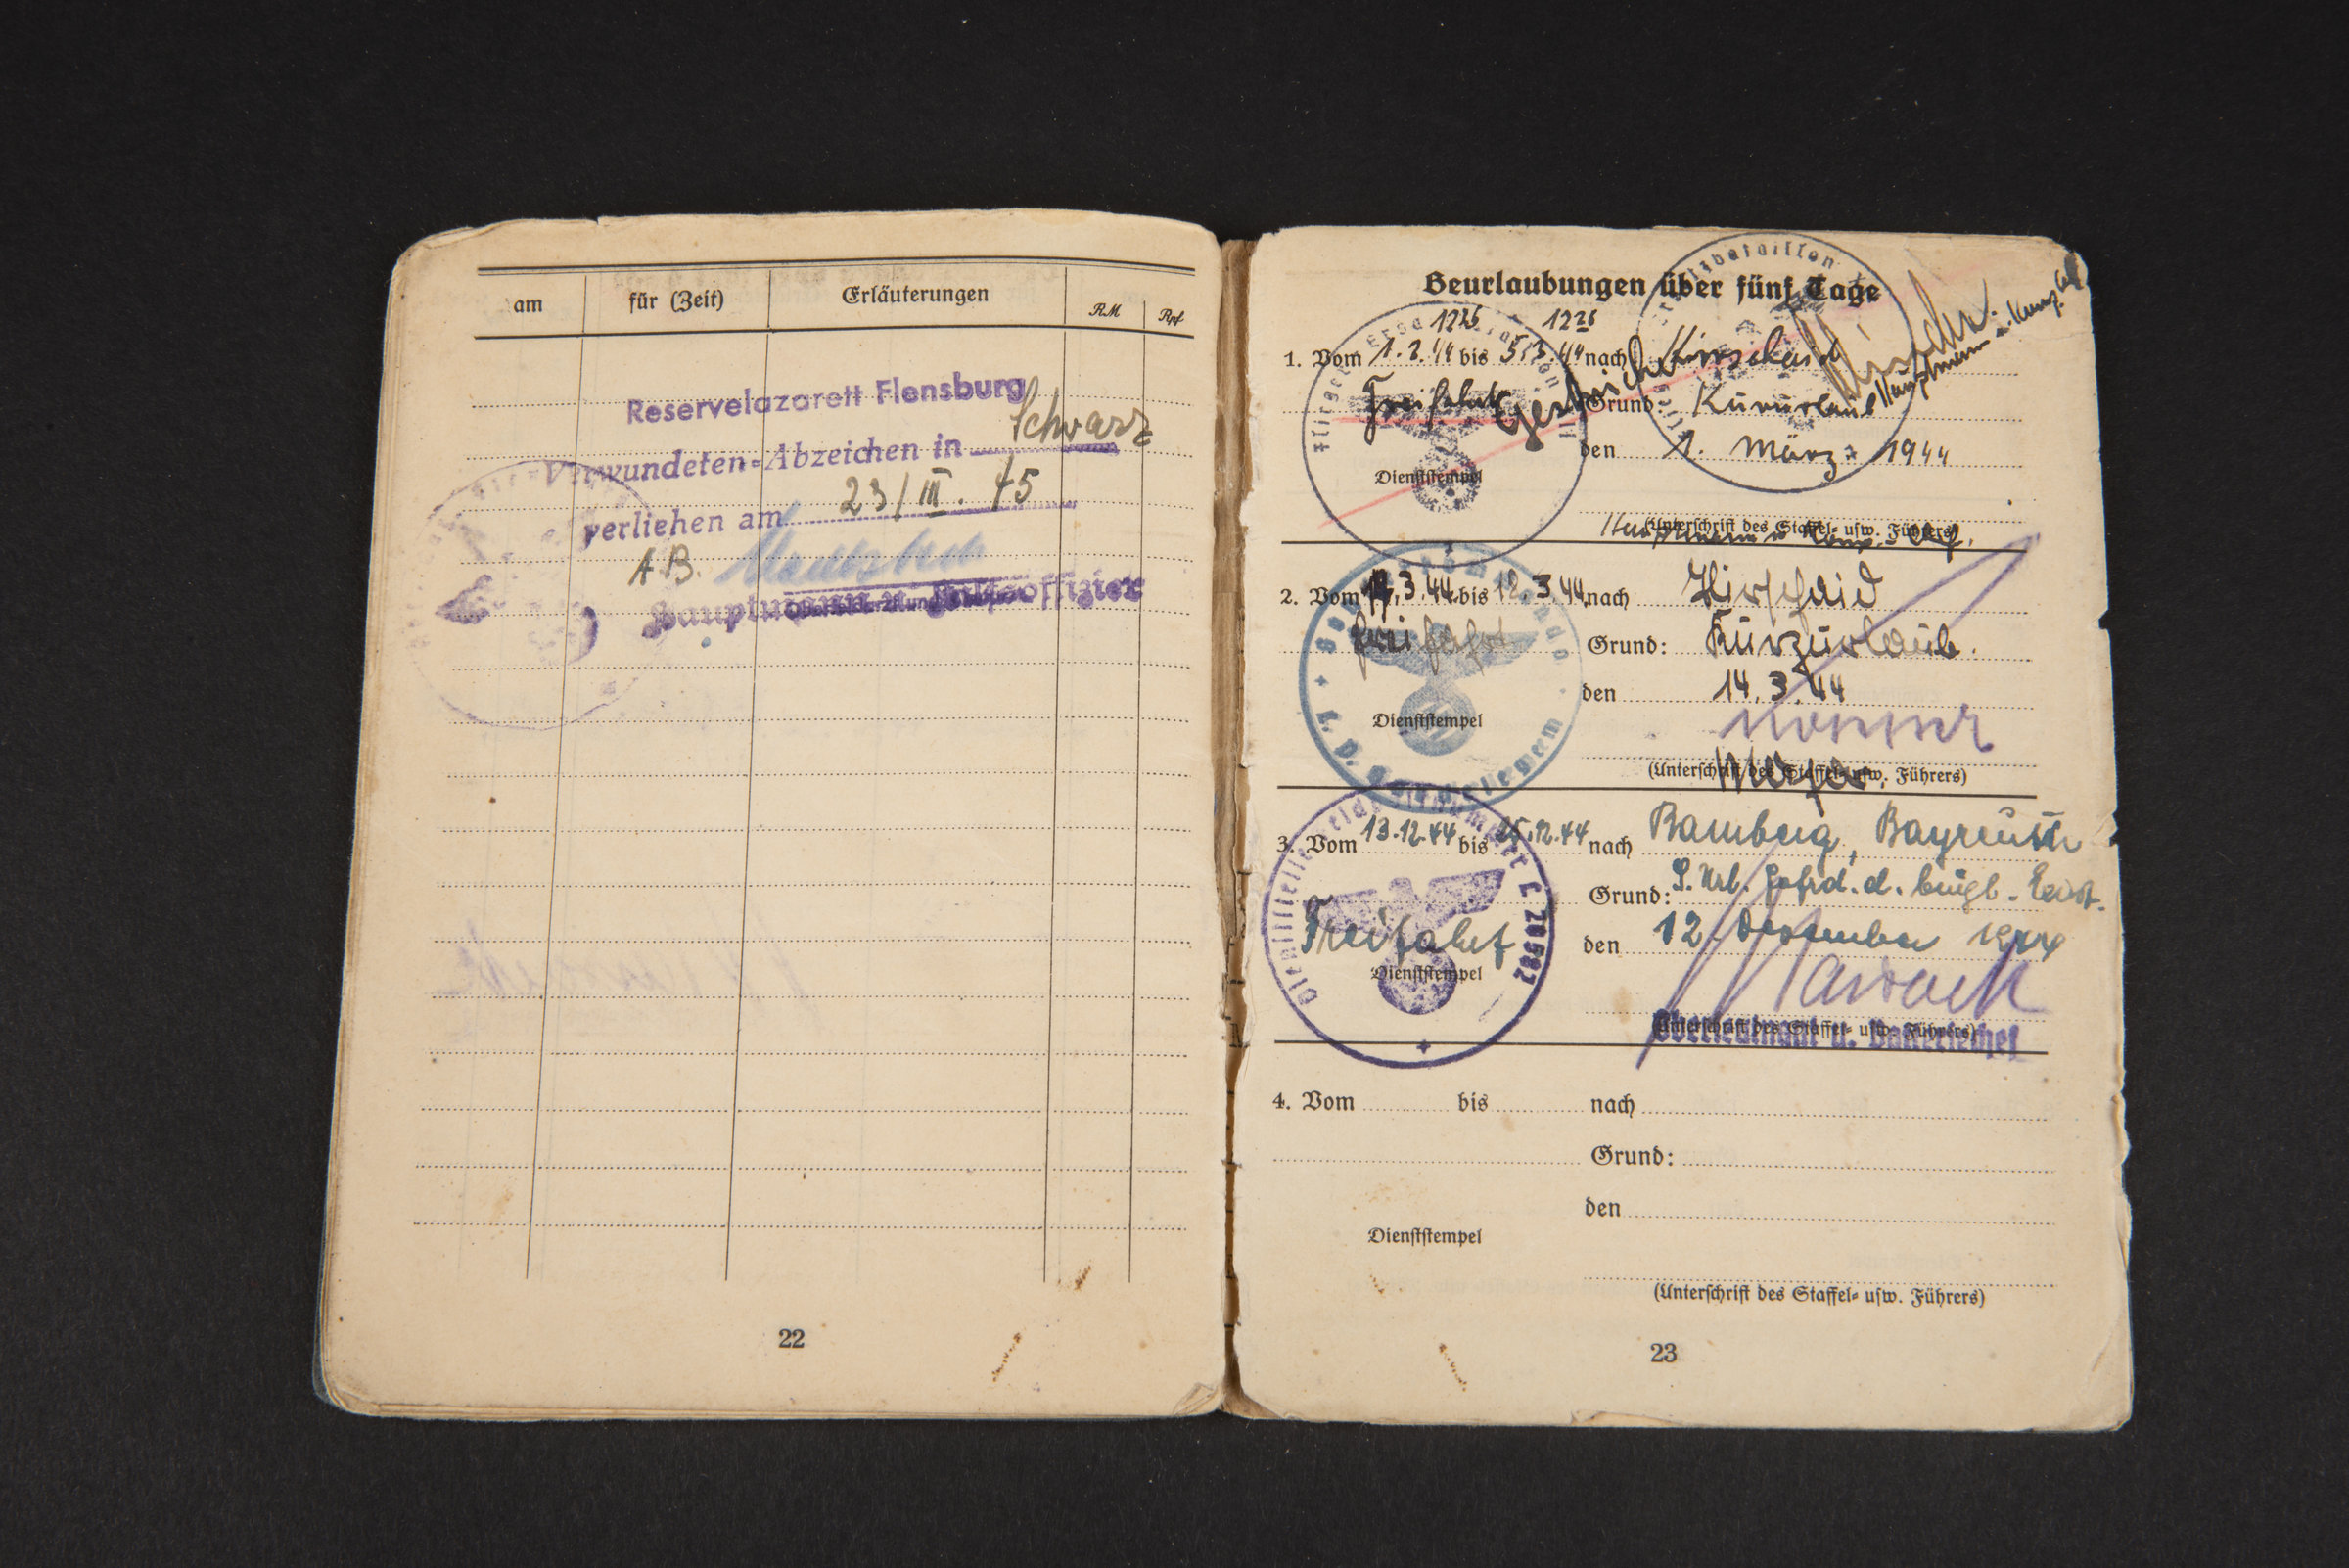 am für (Zeit) Erläuterungen RM Rpf
Reservelazarett Flensburg
Verwundeten-Abzeichen in Schwarz
verliehen am 23/III. 45
A.B.
Hauptmann u. offizier
22
Beurlaubungen über fünf Tage
1226 1226
1. Vom 1.3.44 bis 5.3.44 nach Hirschaid
Freifahrt Gestrichen Grund: Kurzurlaub
den 1. März 1944
Dienststempel
(Unterschrift des Staffel- usw. Führers)
Hauptmann u. Komp.
2. Vom 3.44. bis 12.3.44. nach Hirschaid
Freifahrt Grund: Kurzurlaub.
den 14.3.44
Dienststempel
(Unterschrift des Staffel- usw. Führers)
Major
3. Vom 13.12.44 bis 12.44 nach Bamberg, Bayreuth
Grund: S. Url.
Freifahrt den 12. Dezember 1944
Dienststempel
(Unterschrift des Staffel- usw. Führers)
Oberleutnant u. Batteriechef
4. Vom bis nach
Grund:
den
Dienststempel
(Unterschrift des Staffel- usw. Führers)
23